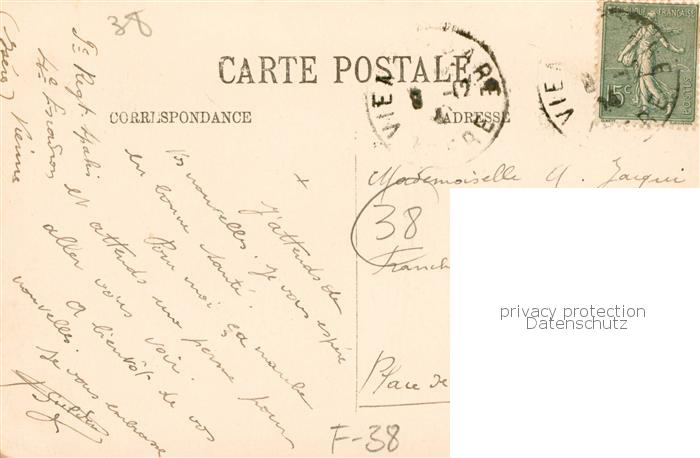 38
CARTE POSTALE
CORRESPONDANCE
ADRESSE
RÉPUBLIQUE FRANÇAISE
15c
VIENNE GARE
VIENNE
7e Regt Spahis
4e Escadron
Vienne
(Isère)
J'attends de
vos nouvelles. Je vous espère
en bonne santé.
Pour moi ça marche
et attends une perme pour
aller vous voir.
A bientôt de vos
nouvelles. Je vous embrasse
Mademoiselle
38
Place de
F-38
privacy protection
Datenschutz